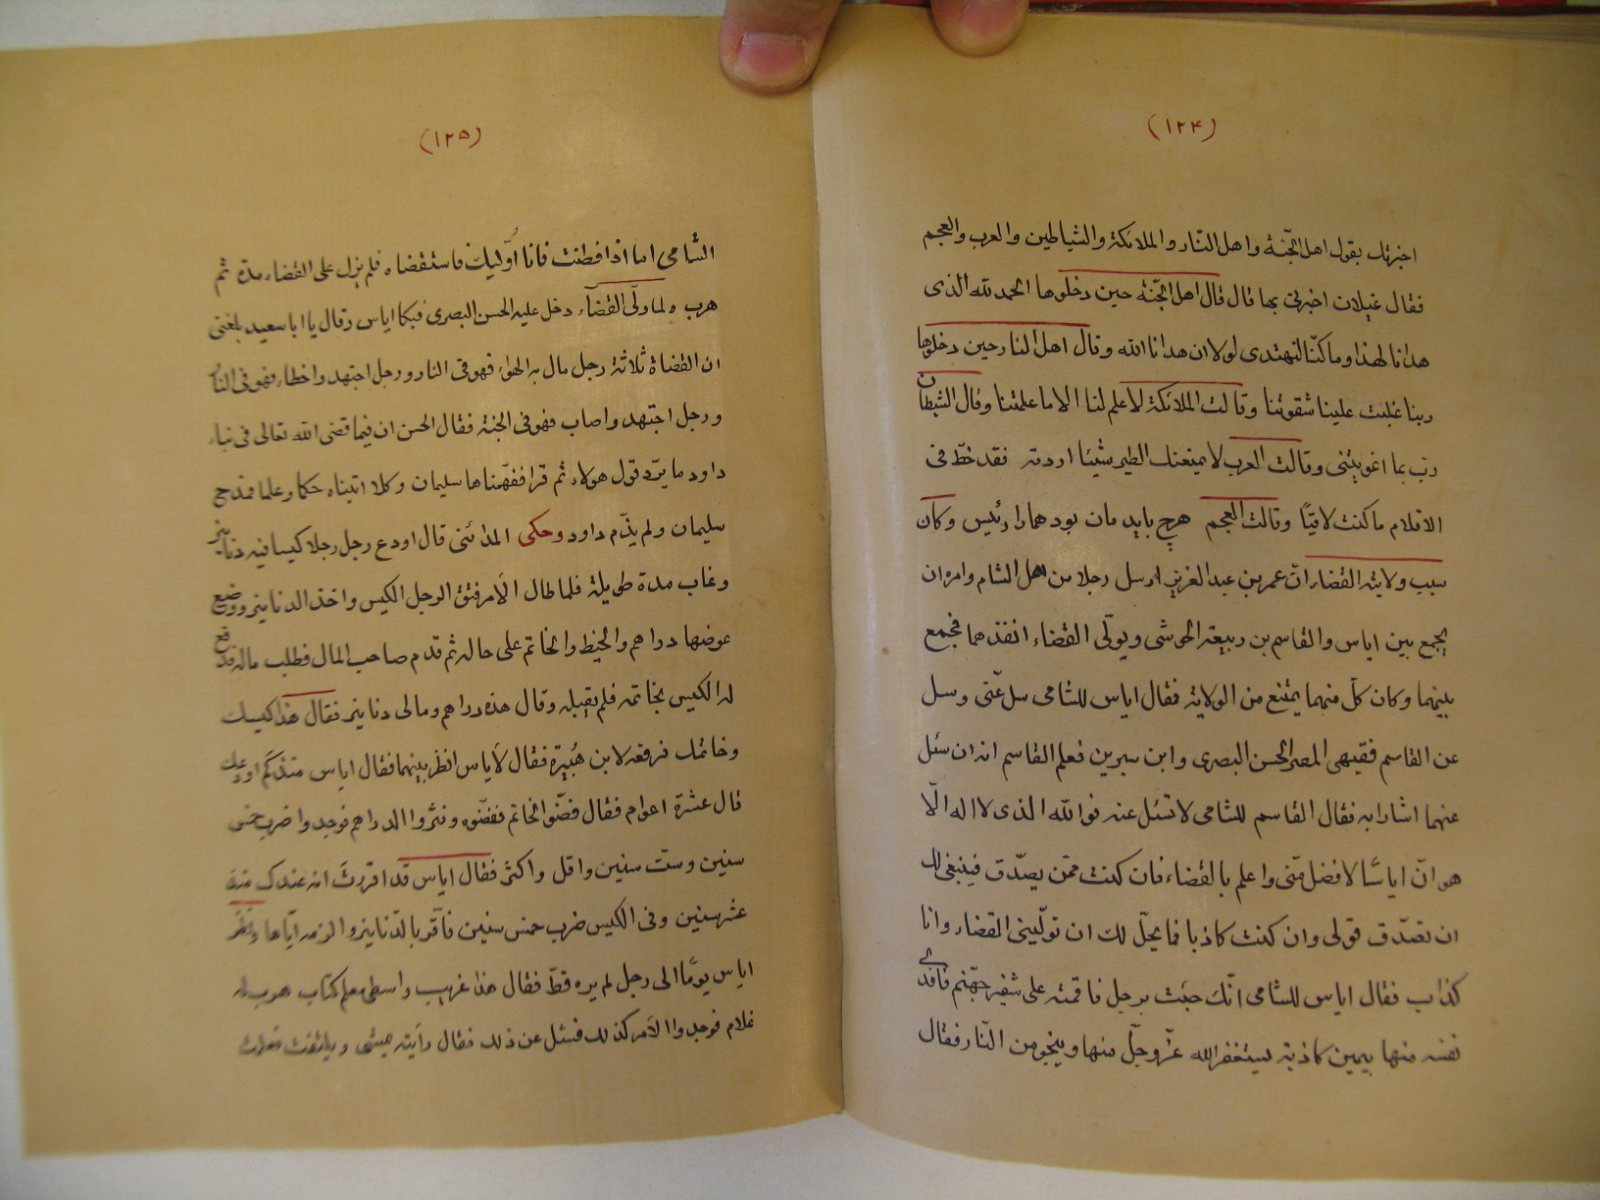 (۱۲۴)
اخبرتك بقول اهل الجّنة واهل النّار والملائكة والشياطين والعرب والعجم
فقال غيلان اخبرنى بها قال قال اهل الجّنة حين دخلوها الحمد لله الذى
هدانا لهذا وما كنّا لنهتدى لولا ان هدانا الله وقال اهل النار حين دخلوها
ربنا غلبت علينا شقوتنا وقالت الملائكة لا علم لنا الا ما علمتنا وقال الشيطان
ربّ بما اغويتنى وقالت العرب لا يمنعنك الطير شيئا اردته فقد خطّ فى
الاقلام ما كنت لاقيًا وقالت العجم هرچ بايد مان بود همارا رئيس وكان
سبب ولايته القضاء انّ عمر بن عبد العزيز ارسل رجلا من اهل الشام وامره ان
يجمع بين اياس والقاسم بن ربيعة الحوشى ويولّى القضاء انفذهما فجمع
بينهما وكان كلّ منهما يمتنع من الولاية فقال اياس للشامى سل عنّى وسل
عن القاسم فقيهى المصر الحسن البصرى وابن سيرين فعلم القاسم انه ان سئل
عنهما اشارا به فقال القاسم للشامى لا تسئل عنه فوالله الذى لا اله الّا
هو انّ اياسًا لافضل منّى واعلم بالقضاء فان كنت ممّن يصدّق فينبغى لك
ان تصدّق قولى وان كنت كاذبا فما يحلّ لك ان تولّينى القضاء وانا
كذاب فقال اياس للشامى انّك جئت برجل فاقمته على شفير جهّنم فافدى
نفسه منها بيمين كاذبة يستغفر الله عزّ وجلّ منها وينجو من النّار فقال
(۱۲۵)
الشّامى اما اذا فطنت فانا اوّليك فاستقضاه فلم يزل على القضاء مدة ثم
هرب ولما ولّى القضاء دخل عليه الحسن البصرى فبكا اياس وقال يا ابا سعيد بلغنى
ان القضاة ثلاثة رجل مال به الهوى فهو فى النار ورجل اجتهد واخطاء فهو فى النار
ورجل اجتهد واصاب فهو فى الجنة فقال الحسن ان فيما قضى الله تعالى فى نباء
داود ما يردّ قول هولاء ثم قرا ففهّمناها سليمان وكلا اتيناه حكما وعلما فمدح
سليمان ولم يذّم داود وحكى المدائنى قال اودع رجل رجلا كيسا فيه دنانير
وغاب مدة طويلة فلما طال الأمر فتق الرجل الكيس واخذ الدنانير ووضع
عوضها دراهم والخيط والخاتم على حاله ثم قدم صاحب المال فطلب ماله فدفع
له الكيس بخاتمه فلم يقبله وقال هذه دراهم ومالى دنانير فقال هذا كيسك
وخاتمك فرفعه لابن هُبيرة فقال لأياس انظر بينهما فقال اياس منذ كم اودعك
قال عشرة اعوام فقال فضّوا الخاتم ففضّوه ونثروا الدراهم فوجدوا ضرب خمس
سنين وست سنين واقل واكثر فقال اياس قد اقررت انه عندك منذ
عشر سنين وفى الكيس ضرب خمس سنين فأقر بالدّنانير والزمه ايّاها ونظر
اياس يومًا الى رجل لم يره قطّ فقال هذا غريب واسطى معلم كتاب هرب له
غلام فوجدوا الأمر كذلك فسئل عن ذلك فقال رأيته يمشى ويلتفت فعلمت